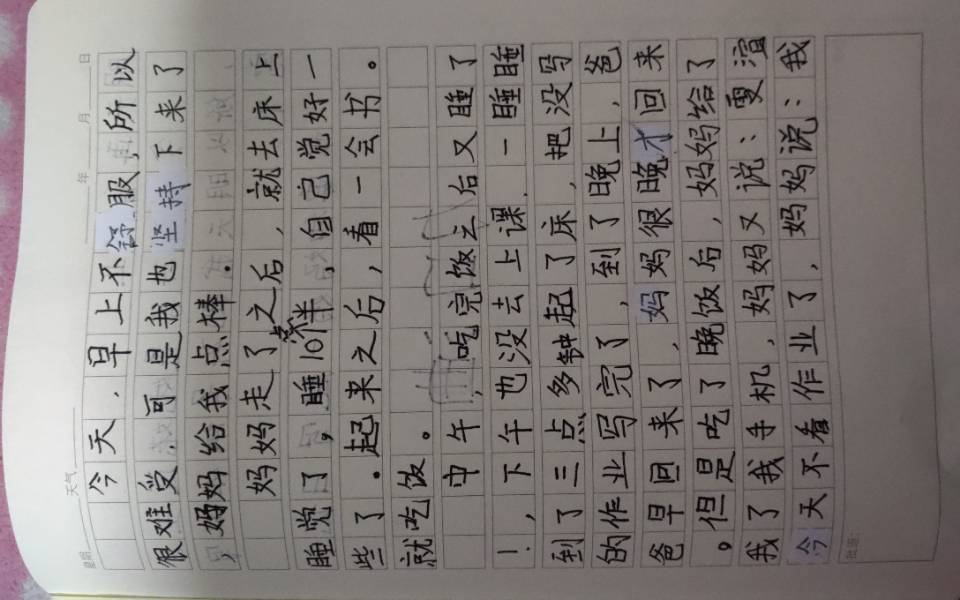 星期 天气 年 月 日
今天，早上不舒服，所以
很难受，可是我也坚持下来了
，妈妈给我点棒。
妈妈走了之后，就去床上
睡觉了，睡10个半，自己觉好一
些了。起来之后，看一会书。
就吃饭。
中午，吃完饭之后又睡了
！，下午也没去上课，一睡睡
到了三点多钟起了床，把没写
的作业写完了，到了晚上，爸
爸早回来了，妈妈很晚才回来
。但是吃了晚饭后，妈妈给了
我了我手机，妈妈又说：要渲
今天不看作业了，妈妈说：我
批语: